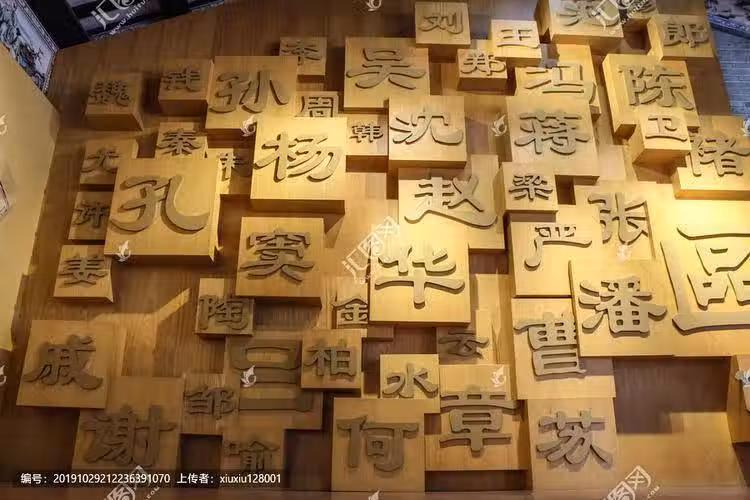 刘
王
郑
岑
吴
郎
魏
钱
孙
冯
陈
周
韩
沈
蒋
卫
褚
秦
朱
杨
尤
孔
赵
梁
许
窦
华
严
张
姜
陶
金
潘
戚
吕
柏
云
曹
水
谢
邹
喻
何
章
苏
汇图网
编号：20191029212236391070 上传者：xiuxiu128001